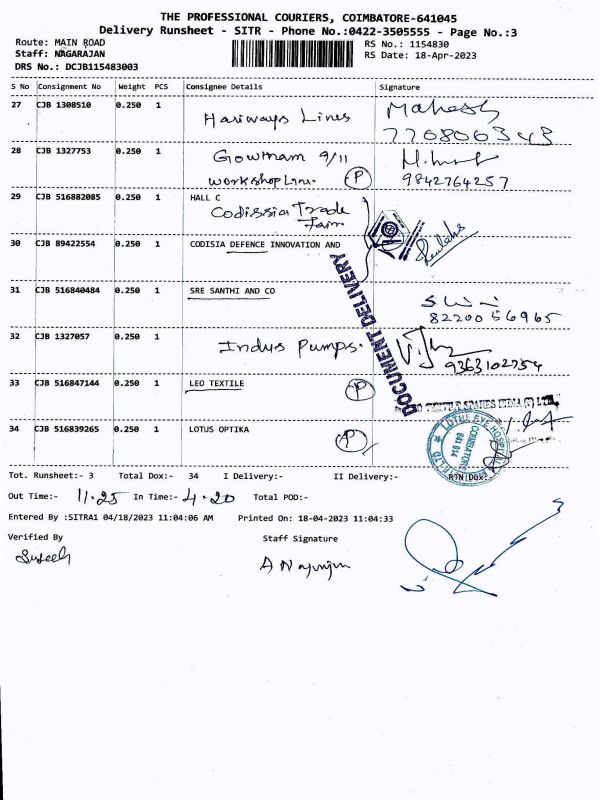 THE PROFESSIONAL COURIERS, COIMBATORE-641045
Delivery Runsheet - SITR - Phone No.:0422-3505555 - Page No.:3
Route: MAIN ROAD
RS No.: 1154830
Staff: NAGARAJAN
RS Date: 18-Apr-2023
DRS No.: DCJB115483003
S No Consignment No Weight PCS Consignee Details Signature
27 CJB 1308510 0.250 1 Hariways Lines Mahesh
7708006343
28 CJB 1327753 0.250 1 Gowtham 9/11
Workshop Line. P 9842764257
29 CJB 516882085 0.250 1 HALL C
Codissia Trade
Fair
30 CJB 89422554 0.250 1 CODISIA DEFENCE INNOVATION AND
DOCUMENT DELIVERY
31 CJB 516840484 0.250 1 SRE SANTHI AND CO
8220056965
32 CJB 1327057 0.250 1 Indus Pumps.
9363102754
33 CJB 516847144 0.250 1 LEO TEXTILE P
TEXTILE SPARES INDIA (P) LTD.
34 CJB 516839265 0.250 1 LOTUS OPTIKA P
LOTUS EYE HOSPITAL
COIMBATORE
641 014
Tot. Runsheet:- 3 Total Dox:- 34 I Delivery:- II Delivery:- RTN Dox:-
Out Time:- 11.25 In Time:- 4.20 Total POD:-
Entered By :SITRA1 04/18/2023 11:04:06 AM Printed On: 18-04-2023 11:04:33
Verified By Staff Signature